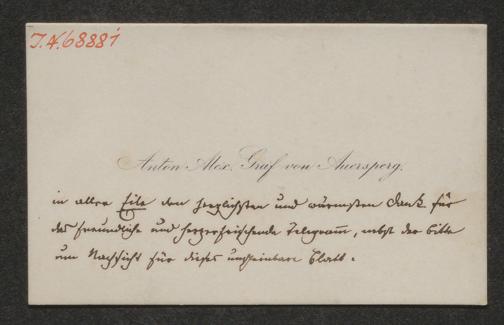 I.N. 68881
Anton Alex. Graf von Auersperg.
in aller Eile den herzlichsten und wärmsten Dank für
das freundliche und herzerfrischende Telegramm, nebst der Bitte
um Nachsicht für dieses unscheinbare Blatt.